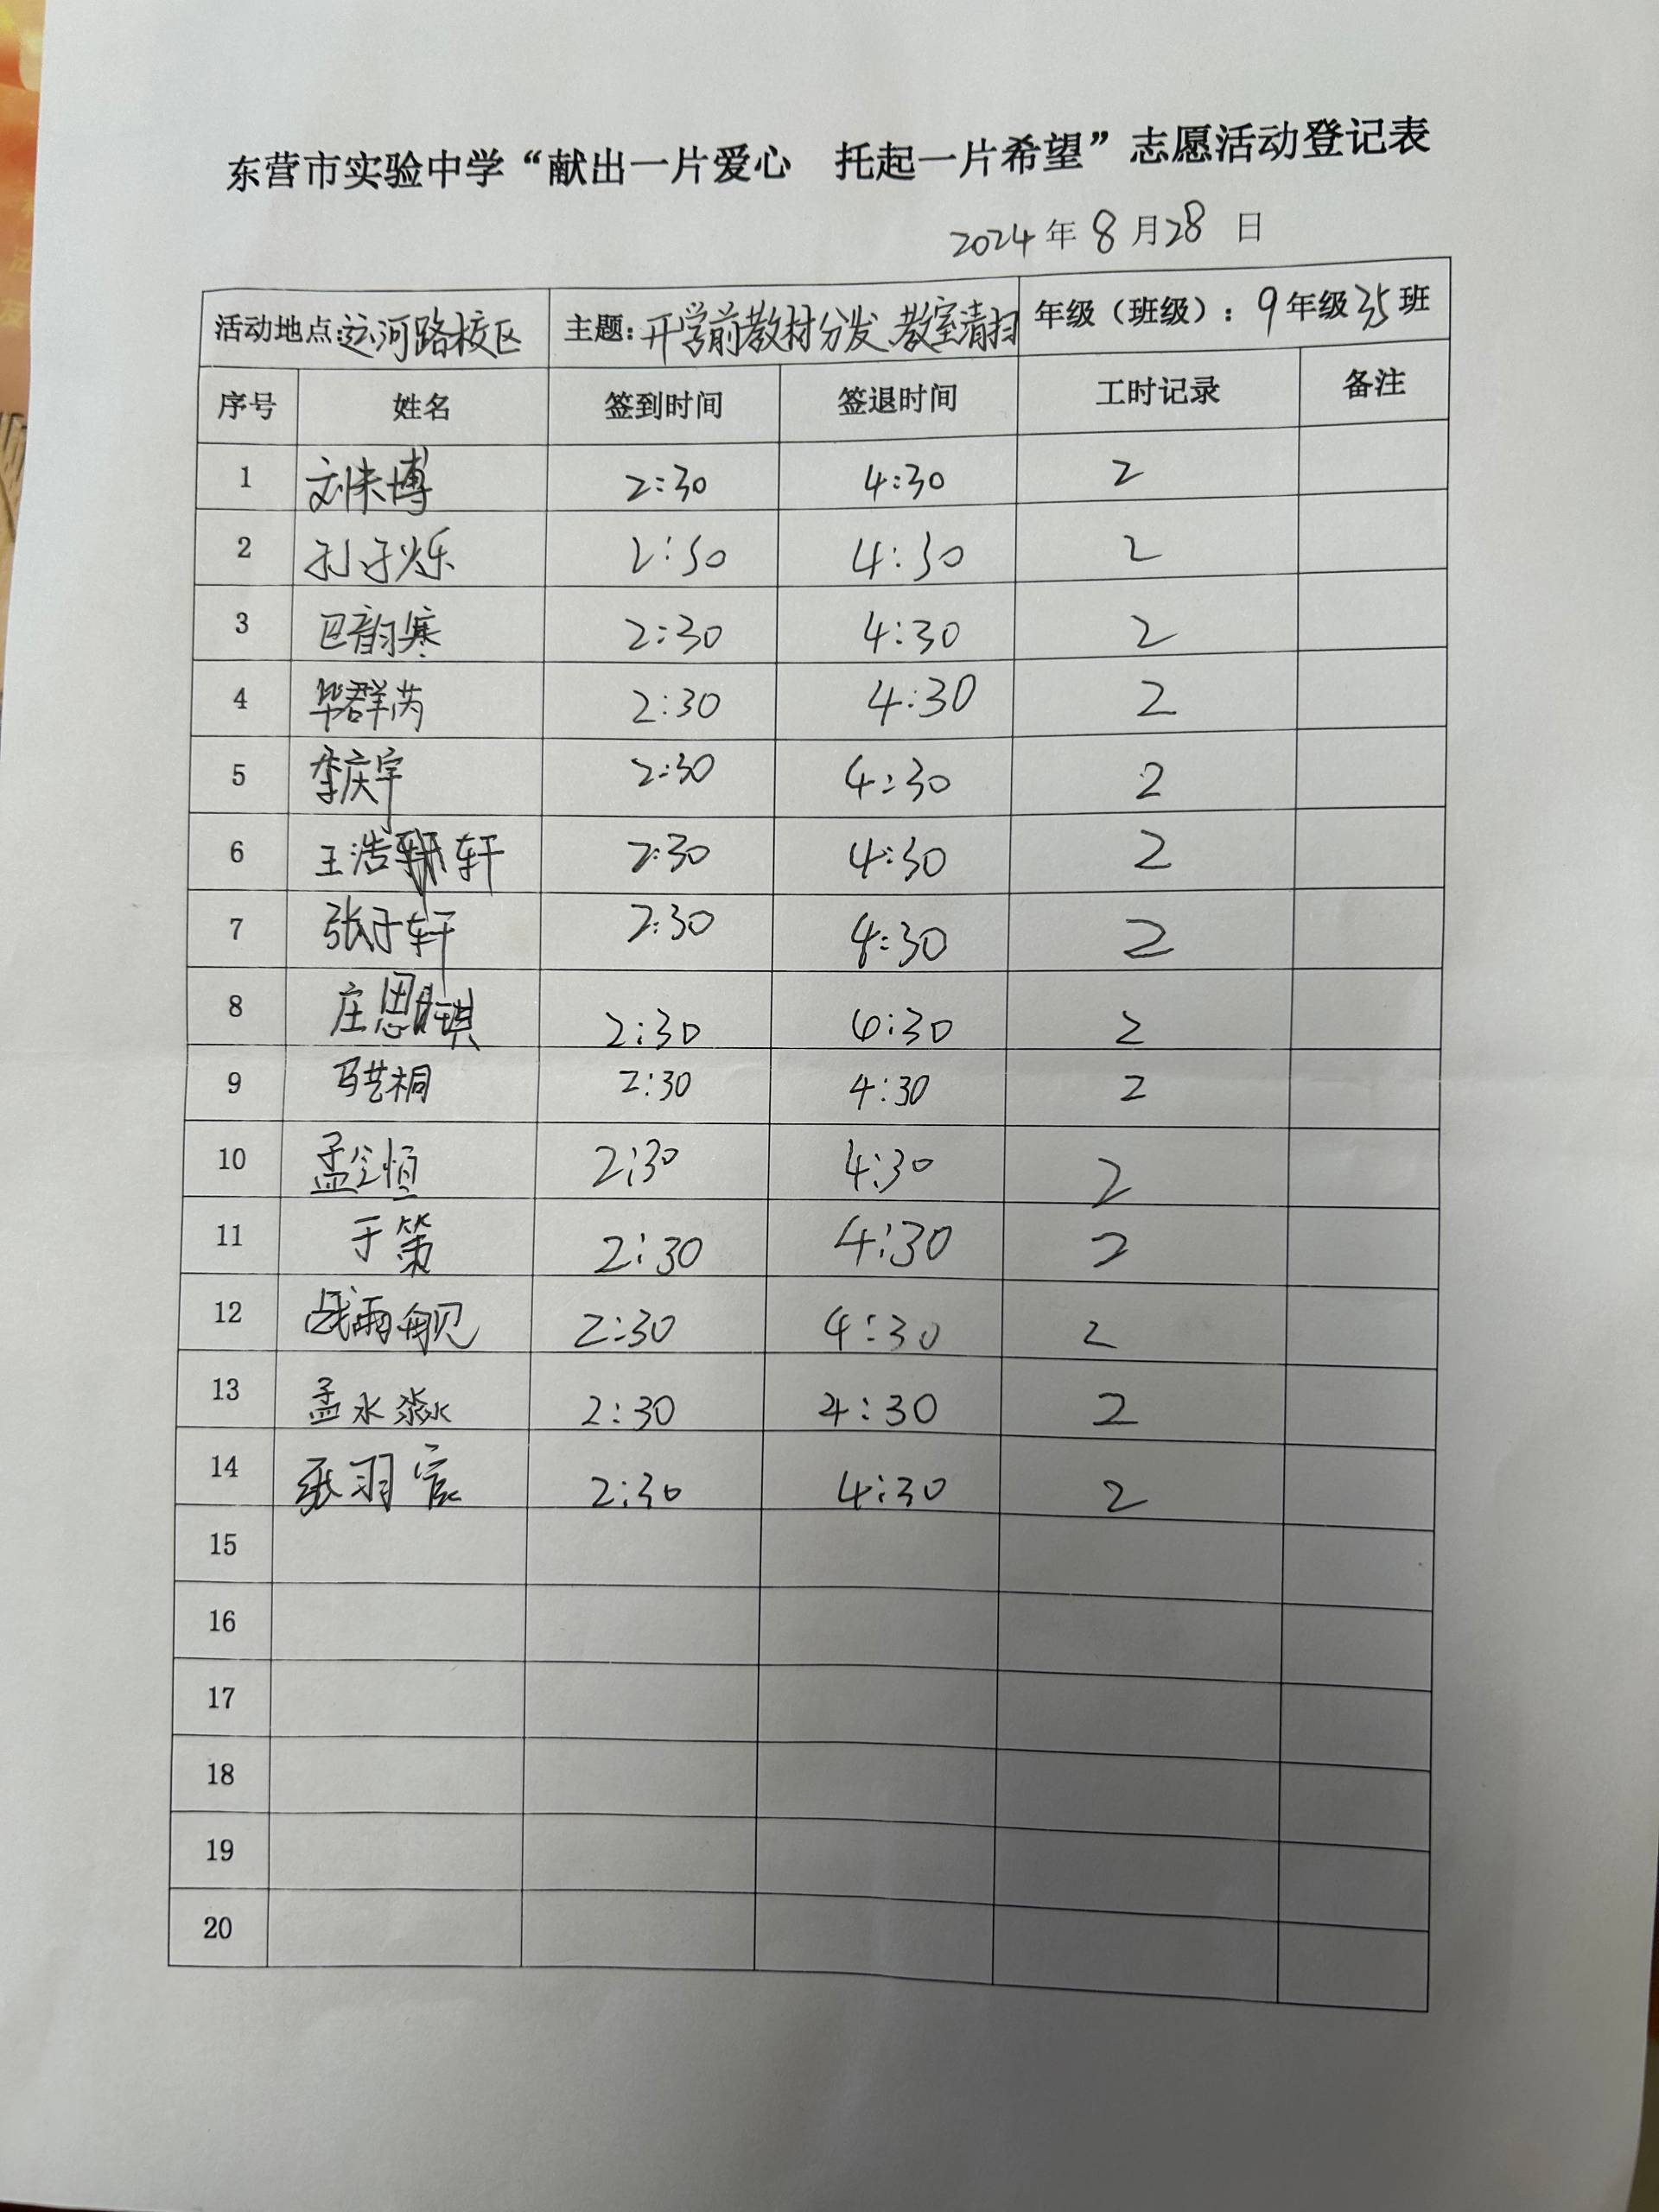 东营市实验中学“献出一片爱心 托起一片希望”志愿活动登记表
2024年8月28日
活动地点:运河路校区 主题:开学前教材分发、教室清扫 年级（班级）:9年级35班
序号 姓名 签到时间 签退时间 工时记录 备注
1 刘朱博 2:30 4:30 2
2 孙子烁 2:30 4:30 2
3 巴韵寒 2:30 4:30 2
4 华群芮 2:30 4:30 2
5 李庆宇 2:30 4:30 2
6 王浩轩 2:30 4:30 2
7 张子轩 2:30 4:30 2
8 庄思琪 2:30 4:30 2
9 马艺桐 2:30 4:30 2
10 孟令恒 2:30 4:30 2
11 于策 2:30 4:30 2
12 战雨舰 2:30 4:30 2
13 孟水淼 2:30 4:30 2
14 张羽宸 2:30 4:30 2
15
16
17
18
19
20